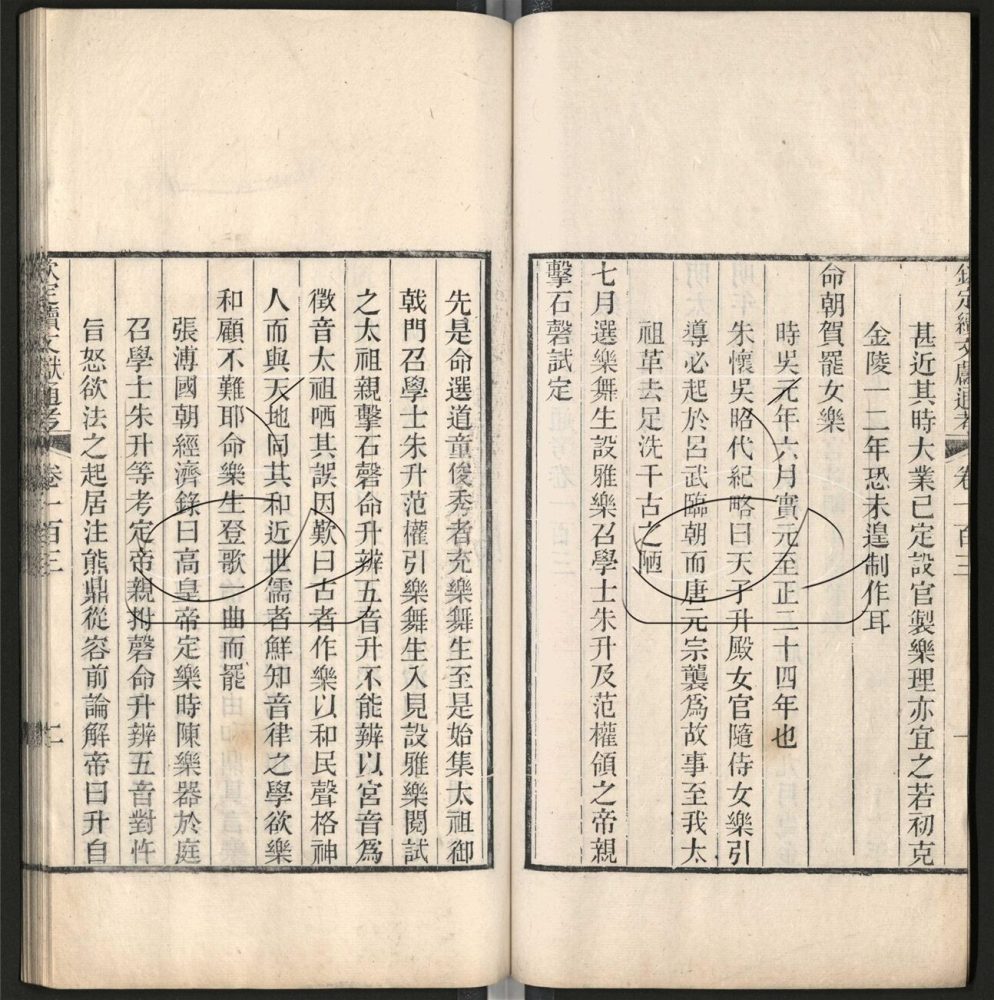 欽定續文獻通考 卷一百三
甚近其時大業已定設官製樂理亦宜之若初克
金陵一二年恐未遑制作耳
命朝賀罷女樂
時吳元年六月實元至正二十四年也
朱懷吳昭代紀略曰天子升殿女官隨侍女樂引
導必起於呂武臨朝而唐元宗襲爲故事至我太
祖革去足洗千古之陋
七月選樂舞生設雅樂召學士朱升及范權領之帝親
擊石磬試定
先是命選道童俊秀者充樂舞生至是始集太祖御
戟門召學士朱升范權引樂舞生入見設雅樂閱試
之太祖親擊石磬命升辨五音升不能辨以宮音爲
徵音太祖哂其誤因歎曰古者作樂以和民聲格神
人而與天地同其和近世儒者鮮知音律之學欲樂
和顧不難耶命樂生登歌一曲而罷
張溥國朝經濟錄曰高皇帝定樂時陳樂器於庭
召學士朱升等考定帝親拊磬命升辨五音對忤
旨怒欲法之起居注熊鼎從容前論解帝曰升自
欽定續文獻通考 卷一百三